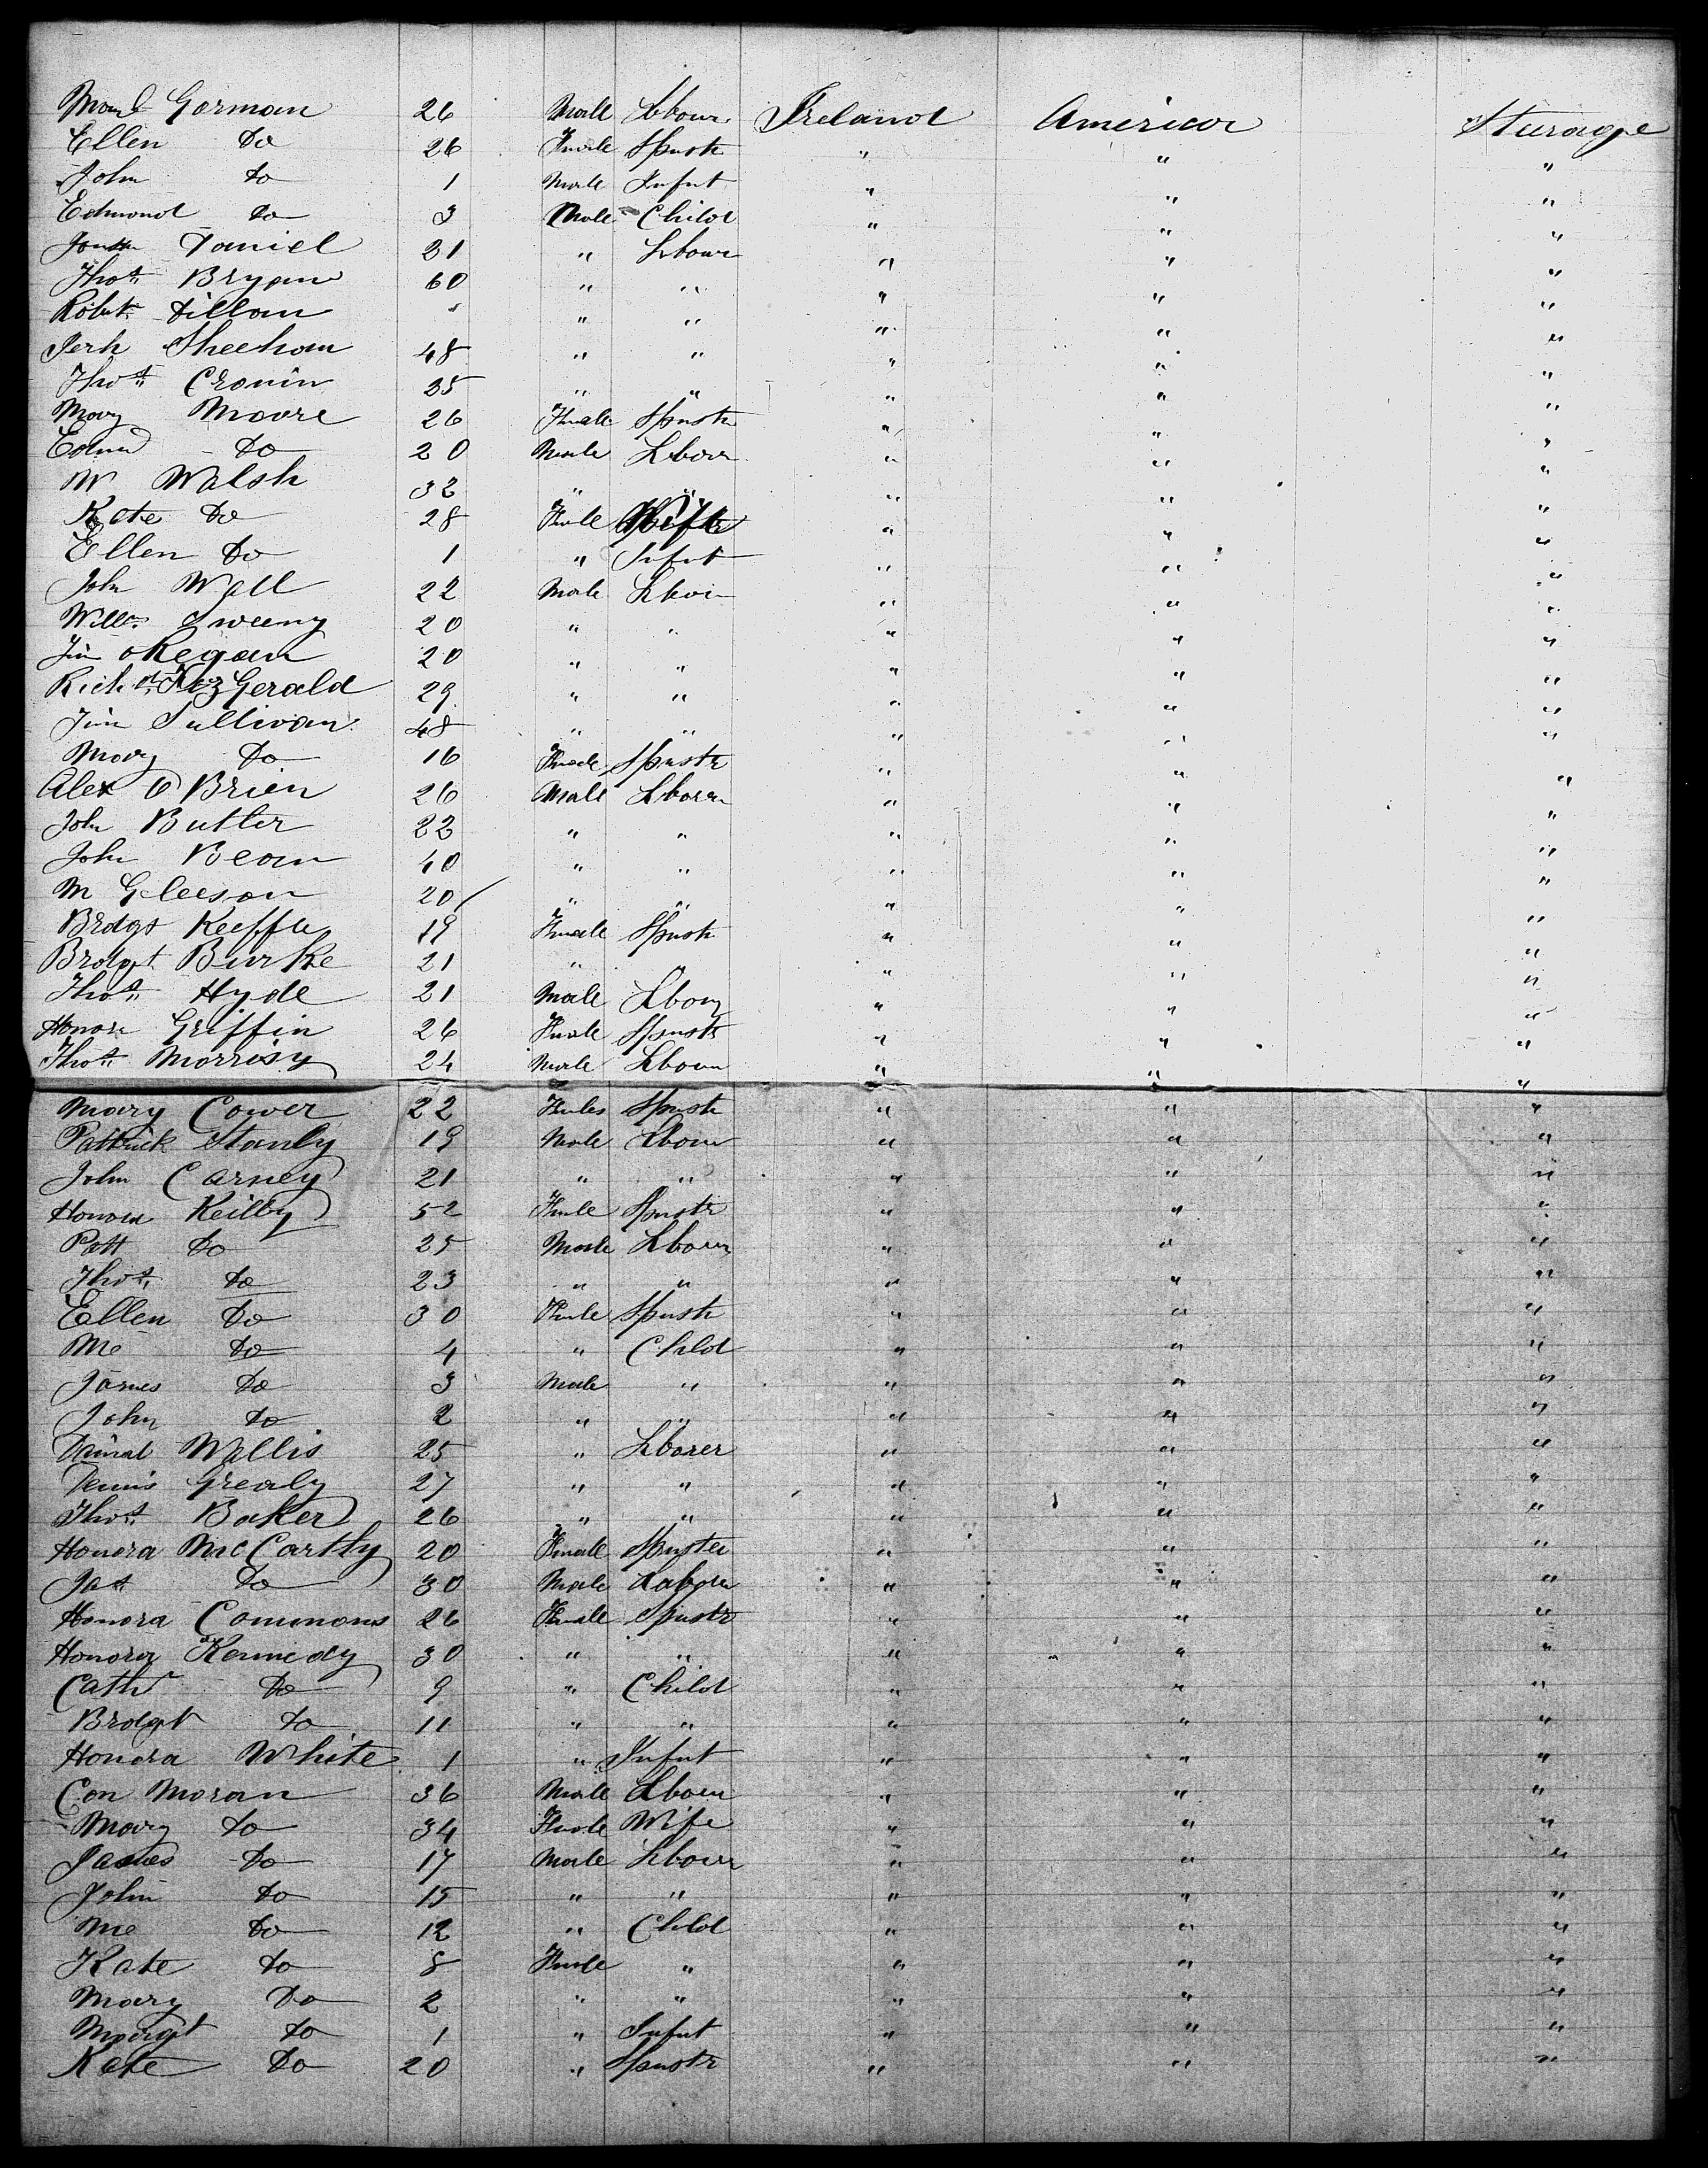 Gorman 26 Male Lbour Ireland America Sturage
Ellen Do 26 Fmale Spnstr " " "
John Do 1 Male Infnt " " "
Edmond Do 3 Male Child " " "
Daniel 21 " Lbour " " "
Thos. Bryan 60 " " " " "
Robt. Dillon " " " " " "
Jerh Sheehan 48 " " " " "
Thos. Cronin 25 " " " " "
Mary Moore 26 Fmale Spnstr " " "
Edmd Do 20 Male Lbour " " "
M Walsh 32 " " " " "
Kate Do 28 Fmle Wife " " "
Ellen Do 1 " Infnt " " "
John Wall 22 Male Lbour " " "
Willm. Sweeny 20 " " " " "
Jim OKegan 20 " " " " "
Richd. FitzGerald 29 " " " " "
Jim Sullivan 48 " " " " "
Mary Do 16 Fmale Spnstr " " "
Alex O Brien 26 Male Lborr " " "
John Butler 22 " " " " "
John Bean 40 " " " " "
M Gleeson 20 " " " " "
Brdgt Keeffe 19 Fmale Spnstr " " "
Brdgt Burke 21 " " " " "
Thos. Hyde 21 Male Lbour " " "
Honora Griffin 26 Fmale Spnstr " " "
Thos. Morrisy 24 Male Lbour " " "
Mary Cower 22 Fmles Spnstr " " "
Pattrick Stanly 19 Male Lbour " " "
John Carney 21 " " " " "
Honora Keilby 52 Fmle Spnstr " " "
Patt Do 25 Male Lbour " " "
Thos. Do 23 " " " " "
Ellen Do 30 Fmle Spnstr " " "
Me Do 4 " Child " " "
James Do 3 Male " " " "
John Do 2 " " " " "
Wallis 25 " Lborer " " "
Dennis Grealy 27 " " " " "
Thos. Baker 26 " " " " "
Honora McCartty 20 Fmale Spnster " " "
Jas. Do 30 Male Laborr " " "
Honora Commons 26 Fmale Spnstr " " "
Honora Kennedy 30 " " " " "
Cathr Do 9 " Child " " "
Brdgt Do 11 " " " " "
Honora White 1 " Infnt " " "
Con Moran 36 Male Lbour " " "
Mary Do 34 Fmale Wife " " "
James Do 17 Male Lbour " " "
John Do 15 " " " " "
Me Do 12 " Child " " "
Kate Do 8 Fmale " " " "
Mary Do 2 " " " " "
Margt Do 1 " Infnt " " "
Kate Do 20 " Spnstr " " "